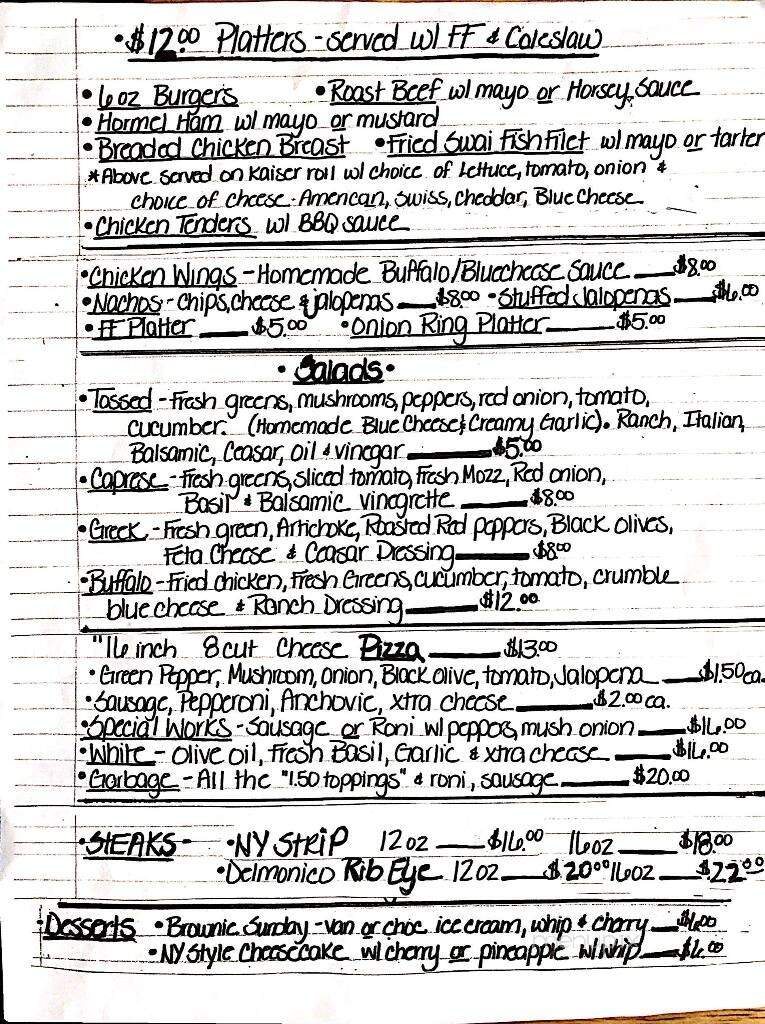 • $12.00 Platters - served w/ FF & Coleslaw
• 6 oz Burgers • Roast Beef w/ mayo or Horsey Sauce
• Hormel Ham w/ mayo or mustard
• Breaded Chicken Breast • Fried Swai Fish Filet w/ mayo or tarter
* Above served on Kaiser roll w/ choice of Lettuce, tomato, onion &
choice of cheese - American, Swiss, cheddar, Blue Cheese
• Chicken Tenders w/ BBQ sauce
• Chicken Wings - Homemade Buffalo/Bluecheese Sauce $8.00
• Nachos - chips, cheese & jalopenas $8.00 • Stuffed Jalopenas $6.00
• FF Platter $5.00 • Onion Ring Platter $5.00
• Salads •
• Tossed - Fresh greens, mushrooms, peppers, red onion, tomato,
cucumber. (Homemade Blue Cheese & Creamy Garlic). Ranch, Italian,
Balsamic, Ceasar, oil & vinegar $5.00
• Caprese - Fresh greens, sliced tomato, Fresh Mozz, Red onion,
Basil & Balsamic vinegrette $8.00
• Greek - Fresh green, Artichoke, Roasted Red peppers, Black olives,
Feta Cheese & Ceasar Dressing $8.00
• Buffalo - Fried chicken, Fresh Greens, cucumber, tomato, crumble
blue cheese & Ranch Dressing $12.00
"16 inch 8 cut Cheese Pizza $13.00
• Green Pepper, Mushroom, onion, Black olive, tomato, Jalopena $1.50 ea.
• Sausage, Pepperoni, Anchovie, xtra cheese $2.00 ea.
• Special Works - Sausage or Roni w/ peppers, mush onion $16.00
• White - olive oil, Fresh Basil, Garlic & xtra cheese $16.00
• Garbage - All the "1.50 toppings" & roni, sausage $20.00
• STEAKS - • NY STRIP 12 oz $16.00 16oz $18.00
• Delmonico Rib Eye 12 oz $20.00 16oz $22.00
Desserts • Brownie Sunday - van or choc ice cream, whip & cherry $6.00
• NY Style Cheesecake w/ cherry or pineapple w/ whip $6.00